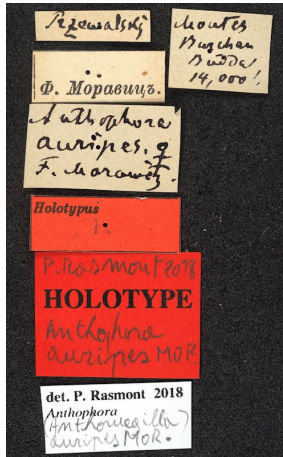 Przewalskij
Montes
Burchan
Budda
14,000'.
Ф. Моравицъ.
Anthophora
auripes. ♀
F. Morawitz.
Holotypus
P. Rasmont 2018
HOLOTYPE
Anthophora
auripes MOR.
det. P. Rasmont 2018
Anthophora
(Anthomegilla)
auripes MOR.